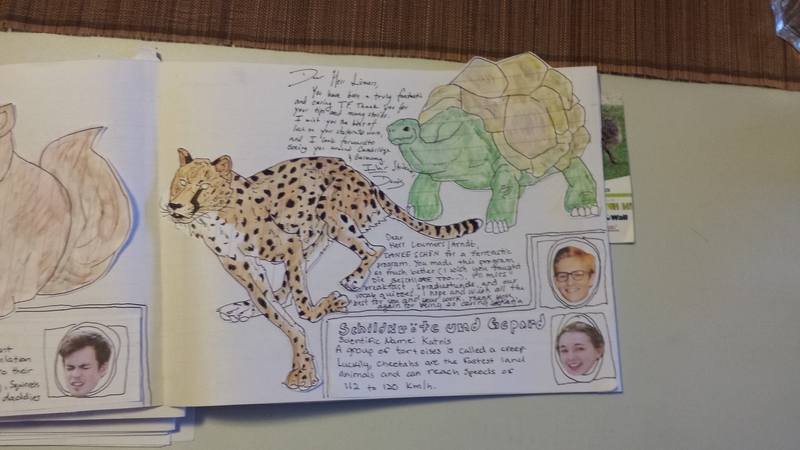 Dear Herr Lumers,
You have been a truly fantastic
and caring TF. Thank you for
your tips and many stories.
I wish you the best of
luck on your doctorate work,
and I look forward to
seeing you around Cambridge
& Germany.
Davis
Dear
Herr Leumers/Arndt,
DANKE SCHÖN for a fantastic
program. You made this program
so much better (I wish you taught
DIE GESCHICHTE TOO...). I'll miss
breakfast, Spradustunde, and our
vocab quizzes. I hope and wish all the
best for you and your work. Thank you
again for being so caring
Schildkröte und Gepard
Scientific Name: Katris
A group of tortoises is called a creep
Luckily, cheetahs are the fastest land
animals and can reach speeds of
112 to 120 km/h.
to their
, squirrels
daddies
Wall